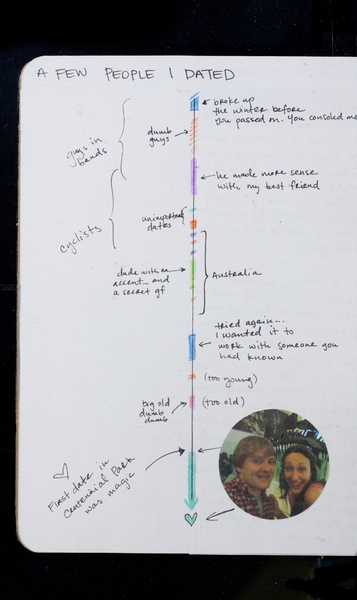 A FEW PEOPLE I DATED
broke up
the winter before
you passed on. You consoled me
guys in
bands
dumb
guys
he made more sense
with my best friend
cyclists
unimportant
dates
dude with an
accent... and
a secret gf
Australia
tried again...
I wanted it to
work with someone you
had known
(too young)
big old
dumb
dumb
(too old)
First date in
Centennial Park
was magic